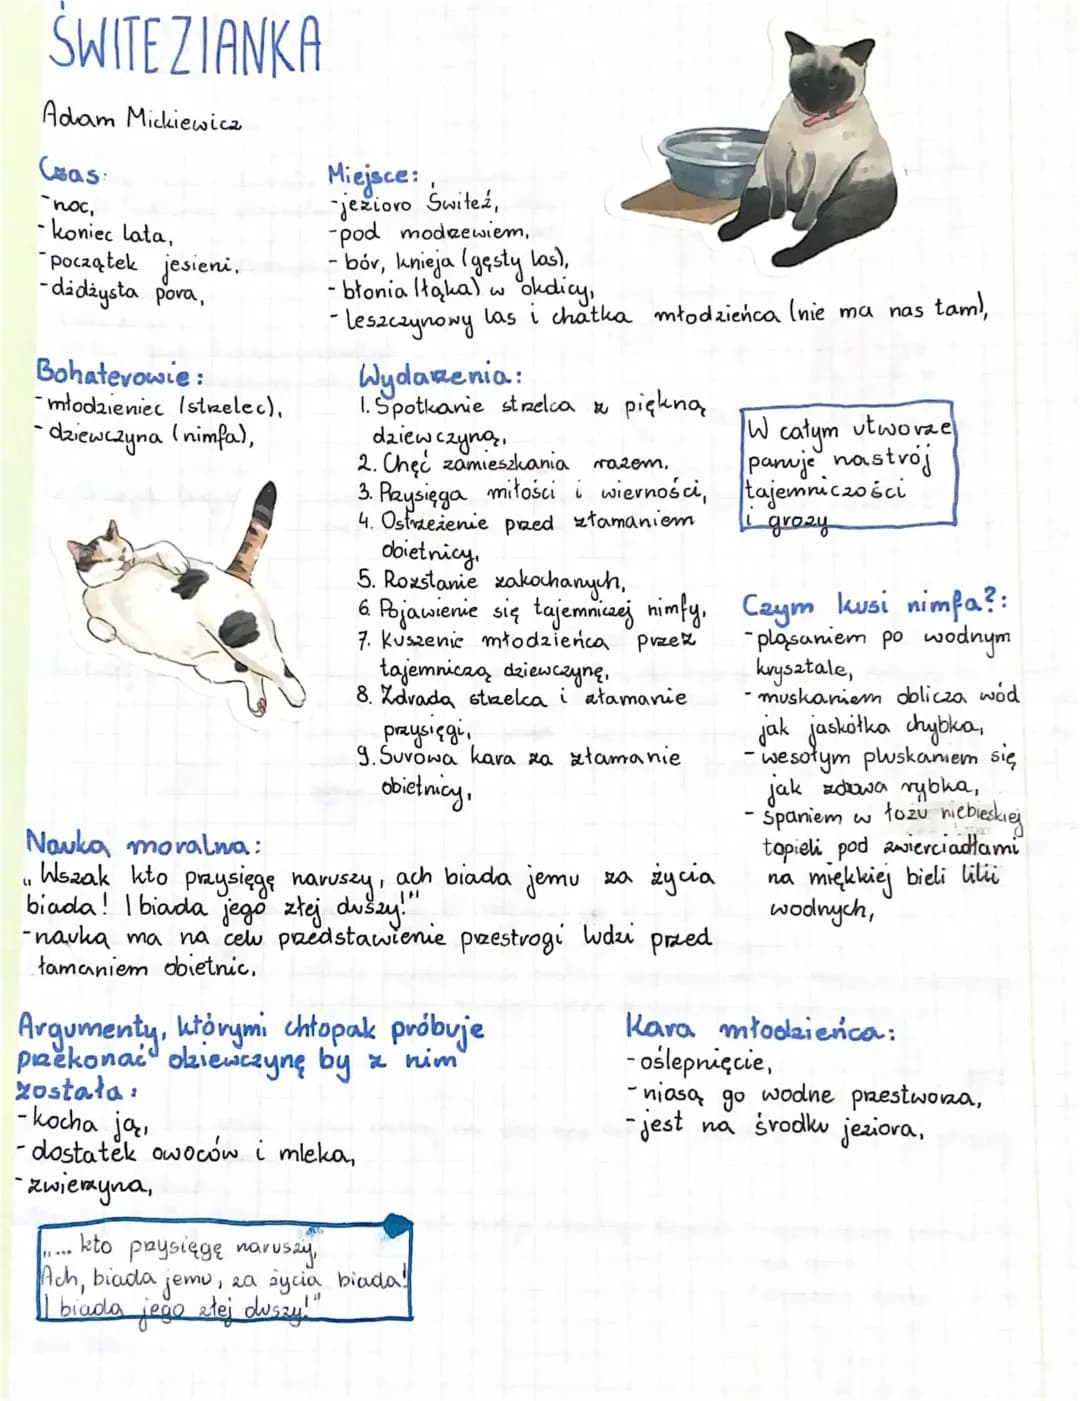 ŚWITEZIANKA
Adam Mickiewicz
Czas:
-noc,
- koniec lata,
-początek jesieni,
-dżdżysta pora,
Miejsce:
-jezioro Świteź,
-pod modrzewiem,
- bór, knieja (gęsty las),
- błonia (łąka) w okolicy,
- leszczynowy las i chatka młodzieńca (nie ma nas tam),
Bohaterowie:
-młodzieniec (strzelec),
- dziewczyna (nimfa),
Wydarzenia:
1. Spotkanie strzelca z piękną
dziewczyną,
2. Chęć zamieszkania razem,
3. Przysięga miłości i wierności,
4. Ostrzeżenie przed złamaniem
obietnicy,
5. Rozstanie zakochanych,
6. Pojawienie się tajemniczej nimfy,
7. Kuszenie młodzieńca przez
tajemniczą dziewczynę,
8. Zdrada strzelca i złamanie
przysięgi,
9. Surowa kara za złamanie
obietnicy,
W całym utworze
panuje nastrój
tajemniczości
i grozy
Czym kusi nimfa?:
-pląsaniem po wodnym
krysztale,
- muskaniem oblicza wód
jak jaskółka chybka,
- wesołym pluskaniem się
jak zdrowa rybka,
- spaniem w łożu niebieskiej
topieli pod zwierciadłami
na miękkiej bieli lilii
wodnych,
Nauka moralna:
„Wszak kto przysięgę naruszy, ach biada jemu za życia
biada! I biada jego złej duszy!"
-nauka ma na celu przedstawienie przestrogi ludzi przed
łamaniem obietnic.
Argumenty, którymi chłopak próbuje
przekonać dziewczynę by z nim
została:
-kocha ją,
- dostatek owoców i mleka,
-zwierzyna,
Kara młodzieńca:
-oślepnięcie,
-niosą go wodne przestworza,
-jest na środku jeziora,
„... kto przysięgę naruszy,
Ach, biada jemu, za życia biada!
I biada jego złej duszy!"